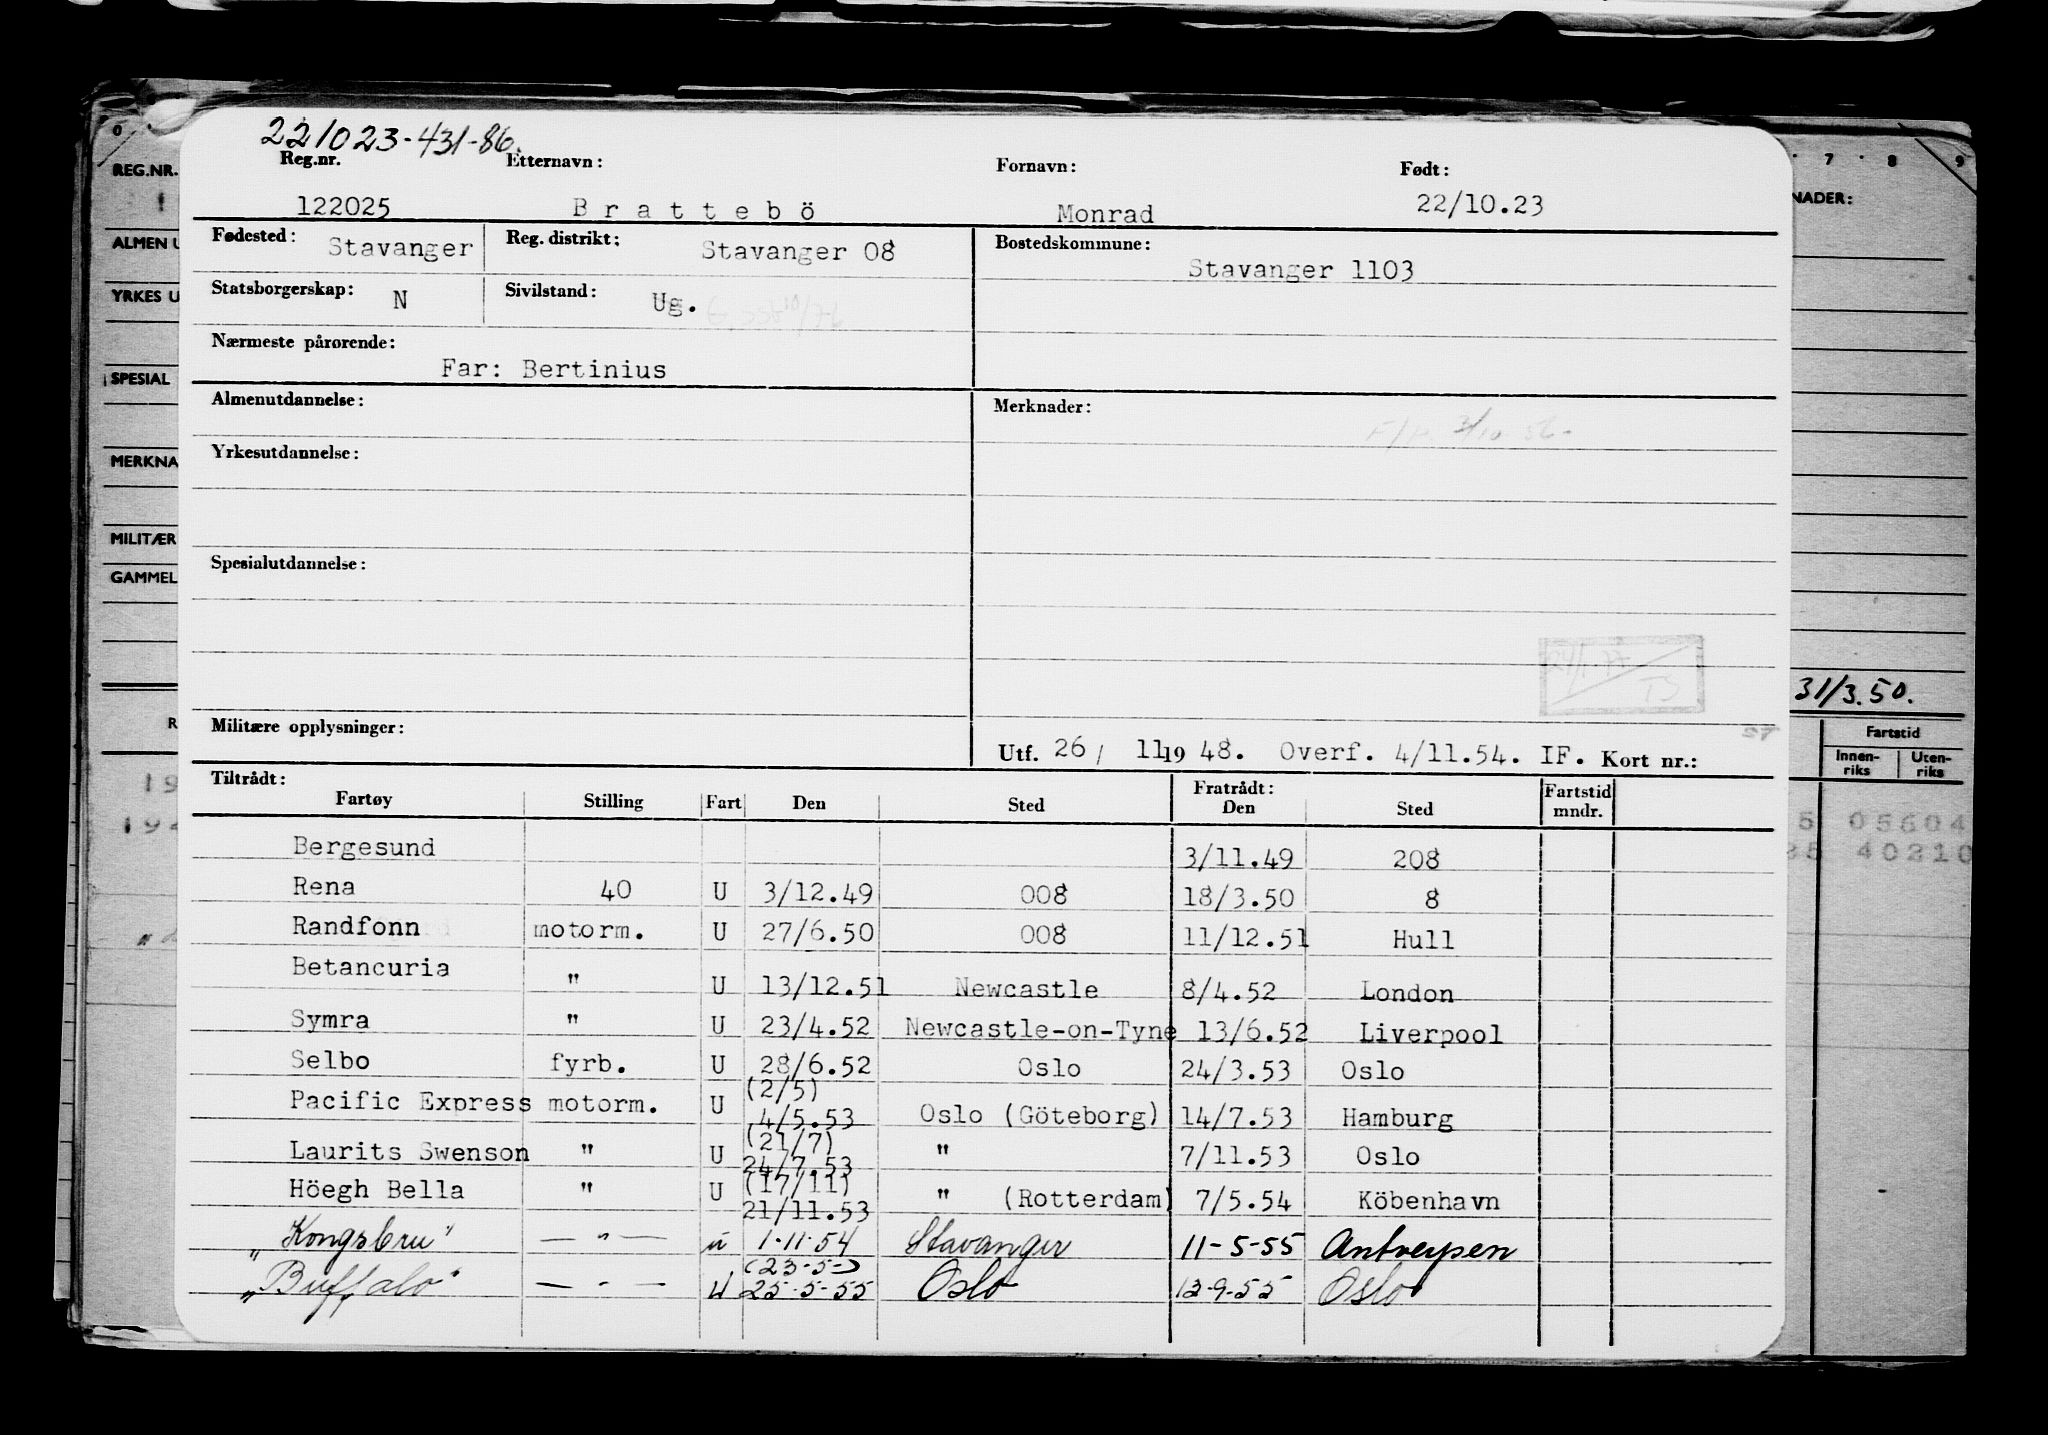 221023-431-86.
Reg.nr. Etternavn: Fornavn: Født:
122025 Brattebö Monrad 22/10.23
Fødested: Stavanger Reg. distrikt: Stavanger 08 Bostedskommune: Stavanger 1103
Statsborgerskap: N Sivilstand: Ug.
Nærmeste pårørende:
Far: Bertinius
Almenutdannelse: Merknader:
Yrkesutdannelse:
Spesialutdannelse:
Militære opplysninger:
Utf. 26/ 11 19 48. Overf. 4/11.54. IF. Kort nr.:
Tiltrådt: Fratrådt:
Fartøy Stilling Fart Den Sted Den Sted Fartstid mndr.
Bergesund 3/11.49 208
Rena 40 U 3/12.49 008 18/3.50 8
Randfonn motorm. U 27/6.50 008 11/12.51 Hull
Betancuria " U 13/12.51 Newcastle 8/4.52 London
Symra " U 23/4.52 Newcastle-on-Tyne 13/6.52 Liverpool
Selbo fyrb. U 28/6.52 Oslo 24/3.53 Oslo
Pacific Express motorm. U (2/5) 4/5.53 Oslo (Göteborg) 14/7.53 Hamburg
Laurits Swenson " U (21/7) 24/7.53 " 7/11.53 Oslo
Höegh Bella " U (17/11) 21/11.53 " (Rotterdam) 7/5.54 Köbenhavn
"Kongsbru" — " — u 1-11-54 Stavanger 11-5-55 Antverpen
"Buffalo" — " — U (23-5-) 25-5-55 Oslo 12-9-55 Oslo
REG.NR.
ALMEN U
YRKES U
SPESIAL
MERKNA
MILITÆR
GAMMEL
R
19
194
7 8 9
NADER:
31/3.50.
Fartstid
Innen-riks Uten-riks
5 05604
35 40210